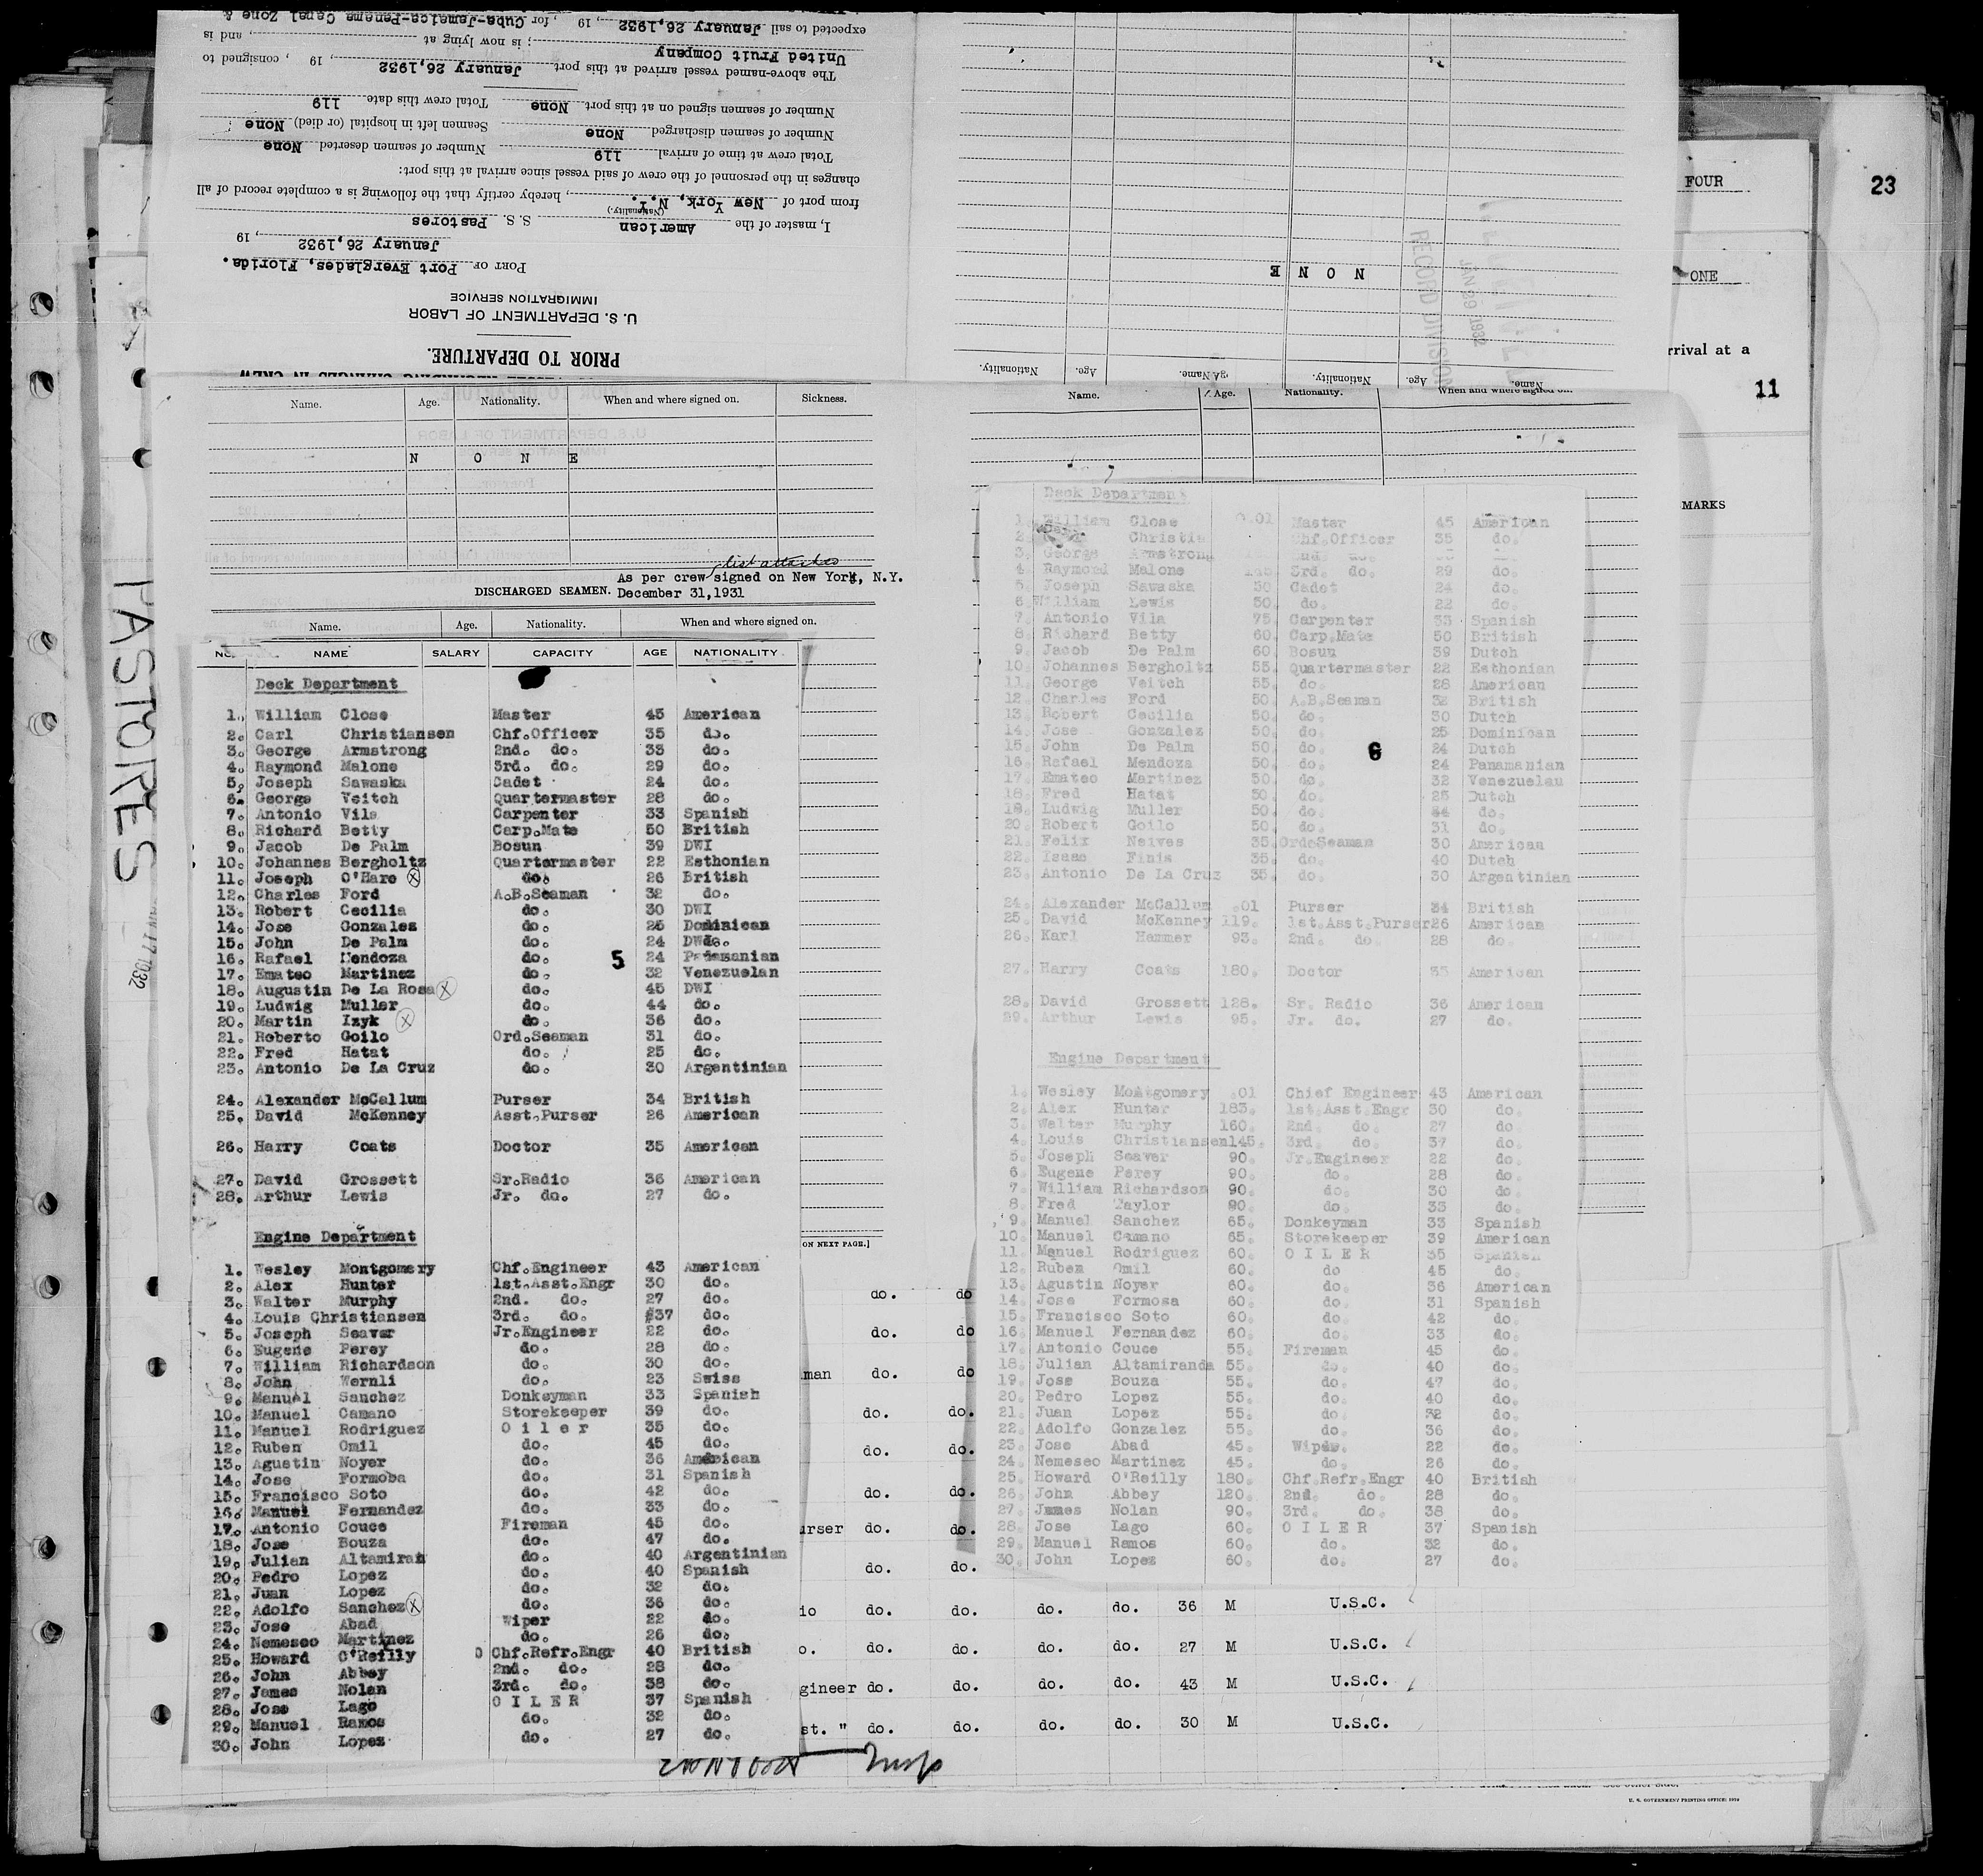 expected to sail January 26,1932, 19 , for Cuba-Jamaica-Panama Canal Zone &
United Fruit Company ; is now lying at , and is
The above-named vessel arrived at this port January 26,1932, 19 , consigned to
Number of seamen signed on at this port None Total crew this date 119
Number of seamen discharged None Seamen left in hospital (or died) None
Total crew at time of arrival 119 Number of seamen deserted None
changes in the personnel of the crew of said vessel since arrival at this port:
from port of New York, N.Y. , hereby certify that the following is a complete record of all
(Nationality.)
I, master of the American S. S. Pastores
January 26,1932 , 19
PORT OF Port Everglades, Florida.
IMMIGRATION SERVICE
U. S. DEPARTMENT OF LABOR
PRIOR TO DEPARTURE.
N O N E
JAN 29 1932
RECORD DIVISION
Name. Age. Nationality. Name. Age. Nationality.
FOUR
23
ONE
rrival at a
11
MARKS
PASTORES
17 1932
Name. Age. Nationality. When and where signed on. Sickness.
N O N E
list attached
As per crew signed on New York, N.Y.
DISCHARGED SEAMEN. December 31,1931
Name. Age. Nationality. When and where signed on.
NO. NAME SALARY CAPACITY AGE NATIONALITY
Deck Department
1. William Close Master 45 American
2. Carl Christiansen Chf.Officer 35 do.
3. George Armstrong 2nd. do. 33 do.
4. Raymond Malone 3rd. do. 29 do.
5. Joseph Sawaska Cadet 24 do.
6. George Veitch Quartermaster 28 do.
7. Antonio Vila Carpenter 33 Spanish
8. Richard Betty Carp.Mate 50 British
9. Jacob De Palm Bosun 39 DWI
10. Johannes Bergholtz Quartermaster 22 Esthonian
11. Joseph O'Hare do. 26 British
12. Charles Ford A.B.Seaman 32 do.
13. Robert Cecilia do. 30 DWI
14. Jose Gonzales do. 25 Dominican
15. John De Palm do. 24
16. Rafael Mendoza do. 24 Panamanian
5
17. Emateo Martinez do. 32 Venezuelan
18. Augustin De La Rosa do. 45 DWI
19. Ludwig Muller do. 44 do.
20. Martin Izyk do. 36 do.
21. Roberto Goilo Ord.Seaman 31 do.
22. Fred Hatat do. 25 do.
23. Antonio De La Cruz do. 30 Argentinian
24. Alexander McCallum Purser 34 British
25. David McKenney Asst.Purser 26 American
26. Harry Coats Doctor 35 American
27. David Grossett Sr.Radio 36 American
28. Arthur Lewis Jr. do. 27 do.
Engine Department
1. Wesley Montgomery Chf.Engineer 43 American
2. Alex Hunter 1st.Asst.Engr 30 do.
3. Walter Murphy 2nd. do. 27 do.
4. Louis Christiansen 3rd. do. 37 do.
5. Joseph Seaver Jr.Engineer 22 do.
6. Eugene Perey do. 28 do.
7. William Richardson do. 30 do.
8. John Wernli do. 23 Swiss
9. Manuel Sanchez Donkeyman 33 Spanish
10. Manuel Camano Storekeeper 39 do.
11. Manuel Rodriguez O i l e r 35 do.
12. Ruben Omil do. 45 do.
13. Agustin Noyer do. 36 American
14. Jose Formoba do. 31 Spanish
15. Francisco Soto do. 42 do.
16. Manuel Fernandez do. 33 do.
17. Antonio Couce Fireman 45 do.
18. Jose Bouza do. 47 do.
19. Julian Altamiran do. 40 Argentinian
20. Pedro Lopez do. 40 Spanish
21. Juan Lopez do. 32 do.
22. Adolfo Sanchez do. 36 do.
23. Jose Abad Wiper 22 do.
24. Nemeseo Martinez do. 26 do.
25. Howard O'Reilly Chf.Refr.Engr 40 British
26. John Abbey 2nd. do. 28 do.
27. James Nolan 3rd. do. 38 do.
28. Jose Lago O I L E R 37 Spanish
29. Manuel Ramos do. 32 do.
30. John Lopez do. 27 do.
Name. Age. Nationality. When and where signed on.
Deck Department
1. William Close .01 Master 45 American
2. Christia Chf.Officer 35 do.
3. George Armstrong 2nd. do.
4. Raymond Malone 145. 3rd. do. 29 do.
5. Joseph Sawaska 50 Cadet 24 do.
6. William Lewis 50. do. 22 do.
7. Antonio Vila 75. Carpenter 33 Spanish
8. Richard Betty 60. Carp.Mate 50 British
9. Jacob De Palm 60. Bosun 39 Dutch
10. Johannes Bergholtz 55. Quartermaster 22 Esthonian
11. George Veitch 55. do. 28 American
12. Charles Ford 50. A.B.Seaman 32 British
13. Robert Cecilia 50. do. 30 Dutch
14. Jose Gonzalez 50. do. 25 Dominican
15. John De Palm 50. do. 24 Dutch
6
16. Rafael Mendoza 50. do. 24 Panamanian
17. Emateo Martinez 50. do. 32 Venezuelau
18. Fred Hatat 50. do. 25 Dutch
19. Ludwig Muller 50. do. 44 do.
20. Robert Goilo 50. do. 31 do.
21. Felix Neives 35. Ord.Seaman 30 American
22. Isaac Finis 35. do. 40 Dutch
23. Antonio De La Cruz 35. do. 30 Argentinian
24. Alexander McCallum .01 Purser 34 British
25. David McKenney 119. 1st.Asst.Purser 26 American
26. Karl Hammer 93. 2nd. do. 28 do.
27. Harry Coats 180. Doctor 35 American
28. David Grossett 128. Sr. Radio 36 American
29. Arthur Lewis 95. Jr. do. 27 do.
Engine Department
1. Wesley Montgomery .01 Chief Engineer 43 American
2. Alex Hunter 183. 1st.Asst.Engr 30 do.
3. Walter Murphy 160. 2nd. do. 27 do.
4. Louis Christiansen 145. 3rd. do. 37 do.
5. Joseph Seaver 90. Jr.Engineer 22 do.
6. Eugene Perey 90. do. 28 do.
7. William Richardson 90. do. 30 do.
8. Fred Taylor 90. do. 33 do.
9. Manuel Sanchez 65. Donkeyman 33 Spanish
10. Manuel Camano 65. Storekeeper 39 American
11. Manuel Rodriguez 60. O I L E R 35 Spanish
12. Ruben Omil 60. do 45 do.
13. Agustin Noyer 60. do. 36 American
14. Jose Formosa 60. do. 31 Spanish
15. Francisco Soto 60. do. 42 do.
16. Manuel Fernandez 60. do. 33 do.
17. Antonio Couce 55. Fireman 45 do.
18. Julian Altamiranda 55. do. 40 do.
19. Jose Bouza 55. do. 47 do.
20. Pedro Lopez 55. do. 40 do.
21. Juan Lopez 55. do. 32 do.
22. Adolfo Gonzalez 55. do. 36 do.
23. Jose Abad 45. Wiper. 22 do.
24. Nemeseo Martinez 45. do. 26 do.
25. Howard O'Reilly 180. Chf.Refr.Engr 40 British
26. John Abbey 120. 2nd. do. 28 do.
27. James Nolan 90. 3rd. do. 38 do.
28. Jose Lago 60. O I L E R 37 Spanish
29. Manuel Ramos 60. do. 32 do.
30. John Lopez 60. do. 27 do.
ON NEXT PAGE.]
do. do
do. do
man do. do
do. do.
do. do.
do. do.
urser do. do.
do. do.
io do. do. do. do. 36 M U.S.C.
o. do. do. do. do. 27 M U.S.C.
gineer do. do. do. do. 43 M U.S.C.
st. " do. do. do. do. 30 M U.S.C.
U. S. GOVERNMENT PRINTING OFFICE: 1929